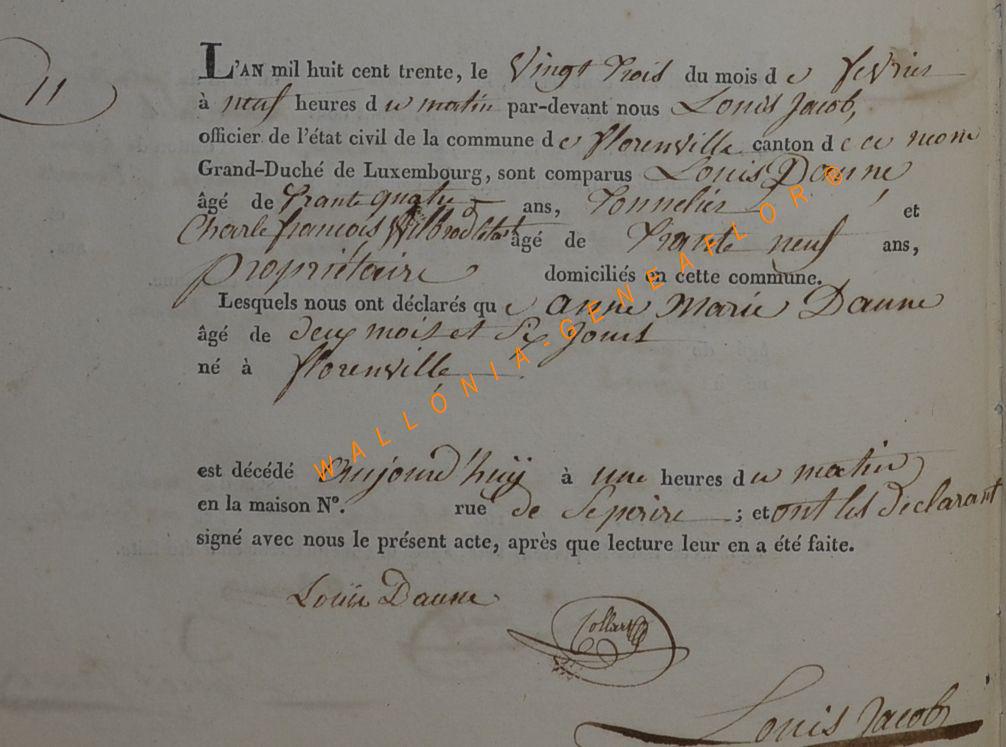 11
L'AN mil huit cent trente, le Vingt trois du mois de fevrier
à neuf heures du matin par-devant nous Louis Jacob,
officier de l'état civil de la commune de florenville canton de ce nom
Grand-Duché de Luxembourg, sont comparus Louis Daune
âgé de trante quatre ans, Tonnelier et
Charle francois âgé de trante neuf ans,
propriétaire domiciliés en cette commune.
Lesquels nous ont déclarés que anne Marie Daune
âgé de deux mois et Six Jours
né à florenville
est décédé aujourd'huÿ à une heures du matin
en la maison N°. rue de ; et ont les déclarant
signé avec nous le présent acte, après que lecture leur en a été faite.
Louis Daune
Collart
Louis Jacob
WALLONIA-GENEAFLOR©